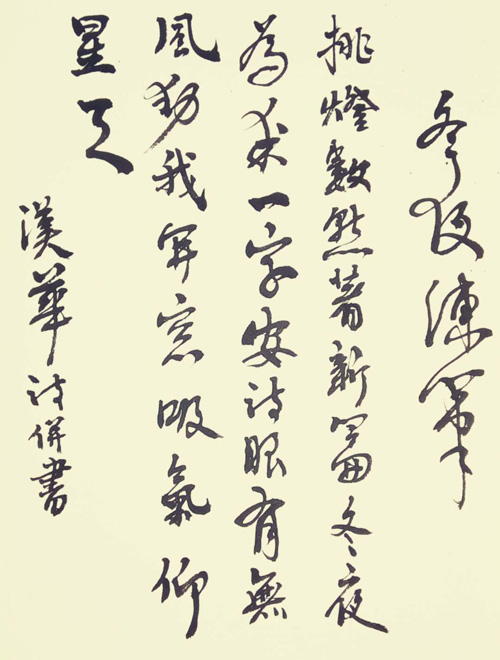 冬夜練筆
挑燈數點著新篇冬夜
為求一字安詩眼有無
風動我開窓吸氣仰
星天
漢華詩併書